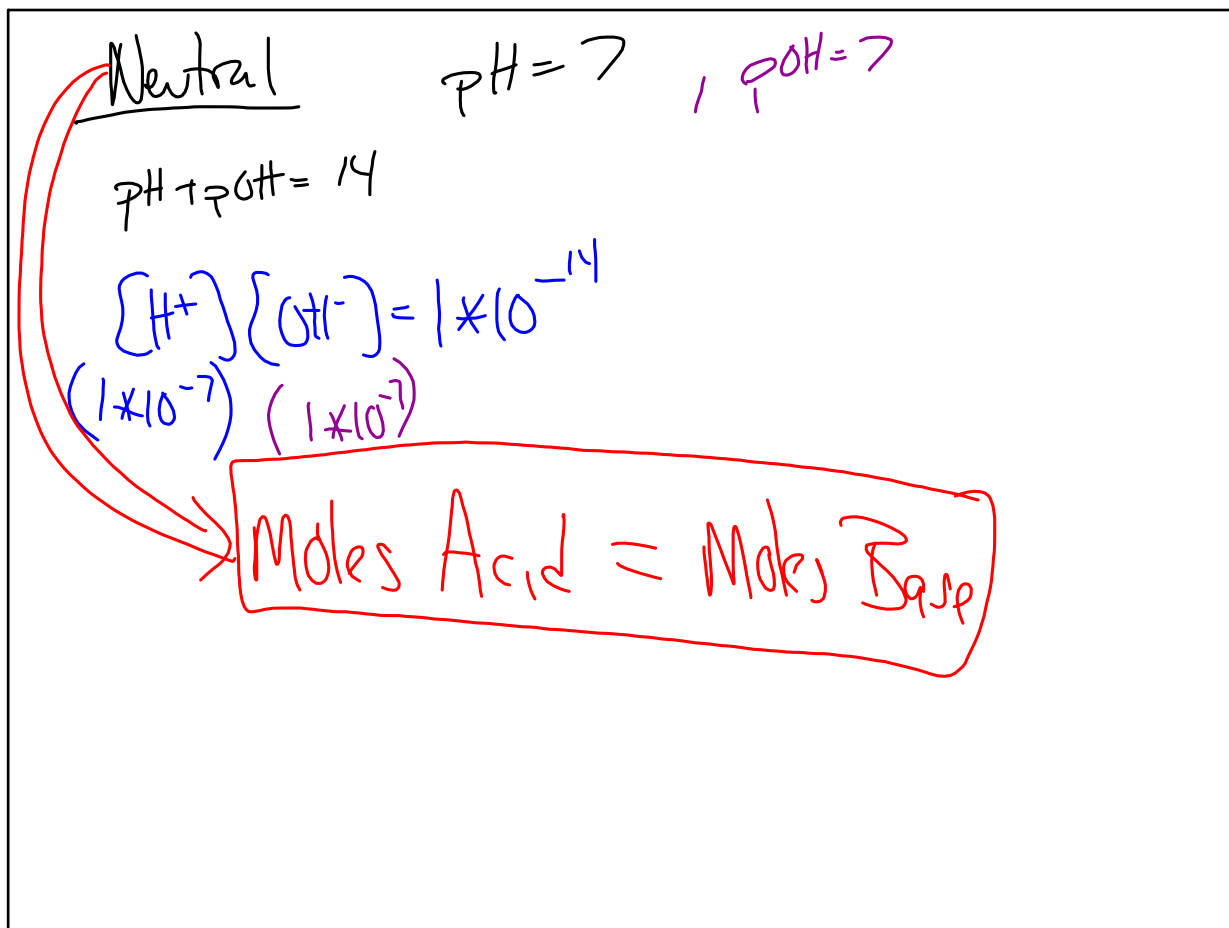 Neutral pH = 7 , pOH = 7
pH + pOH = 14
[H⁺][OH⁻] = 1*10⁻¹⁴
(1*10⁻⁷) (1*10⁻⁷)
Moles Acid = Moles Base